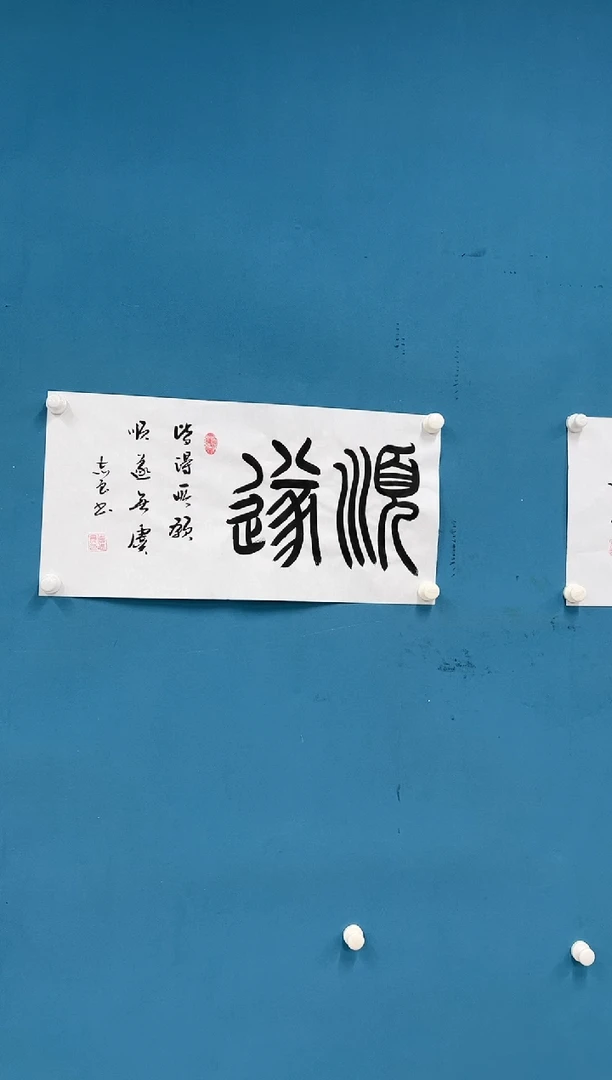 順遂
皆得所願
順遂無虞
志良书